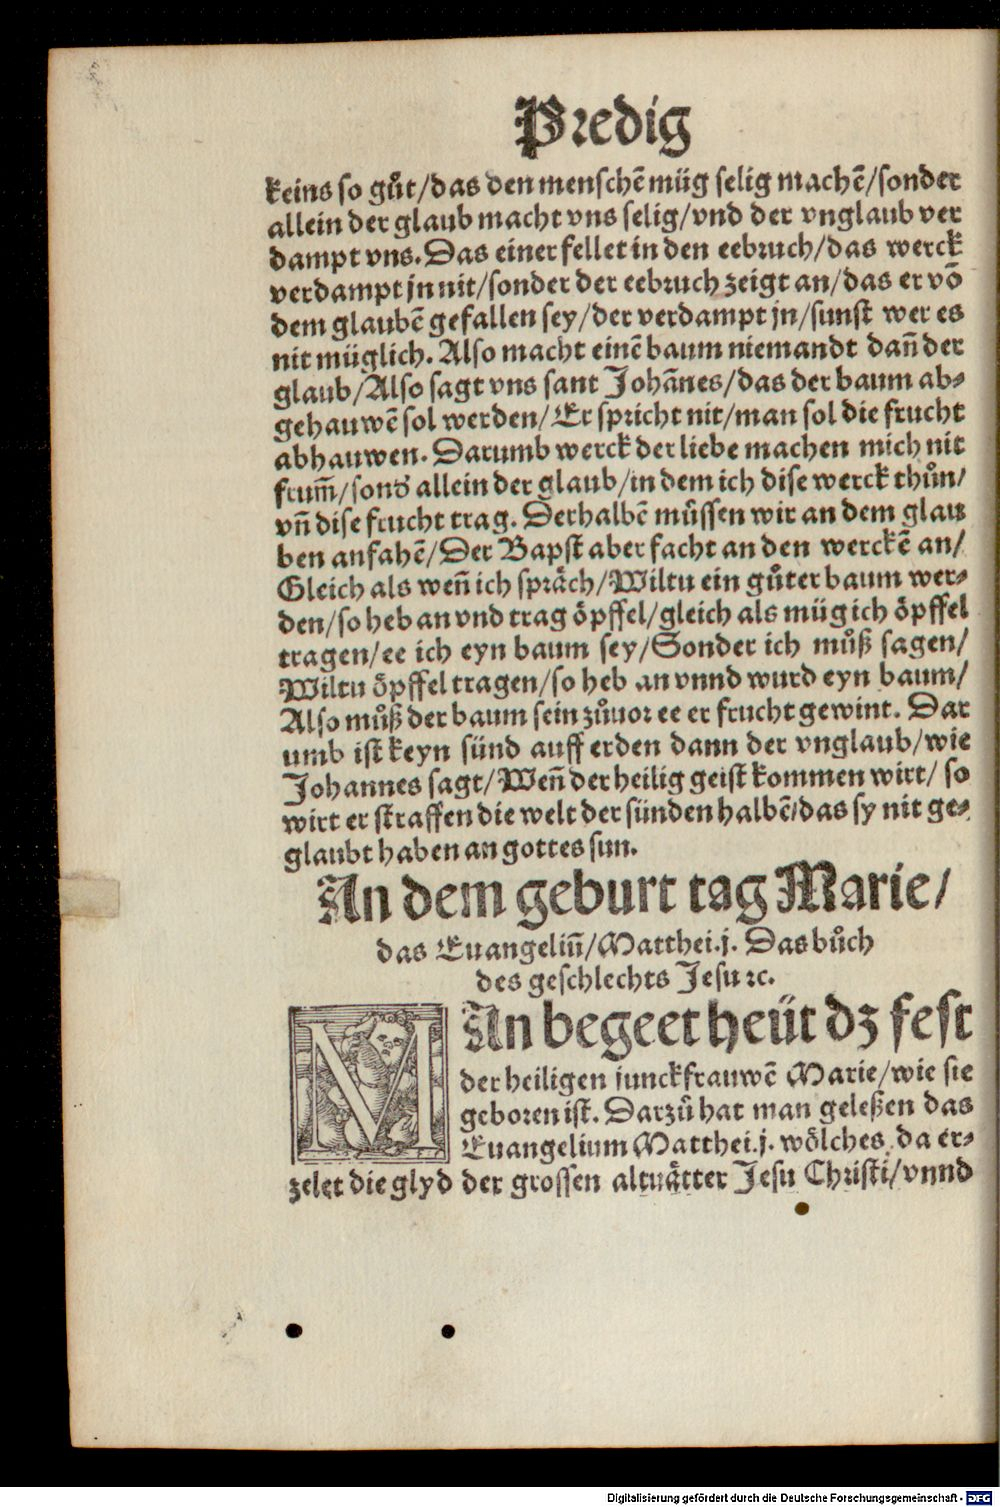 Predig
keins so gůt/das den menschẽ müg selig machẽ/sonder
allein der glaub macht vns selig/vnd der vnglaub ver
dampt vns. Das einer fellet in den eebruch/das werck
verdampt jn nit/sonder der eebruch zeigt an/das er võ
dem glaubẽ gefallen sey/der verdampt jn/sunst wer es
nit müglich. Also macht einẽ baum niemandt dañ der
glaub/Also sagt vns sant Johãnes/das der baum ab⸗
gehauwẽ sol werden/Er spricht nit/man sol die frucht
abhauwen. Darumb werck der liebe machen mich nit
frum̃/sond̕ allein der glaub/in dem ich dise werck thůn/
vñ dise frucht trag. Derhalbẽ müssen wir an dem glau
ben anfahẽ/Der Bapst aber facht an den werckẽ an/
Gleich als weñ ich spräch/Wiltu ein gůter baum wer⸗
den/so heb an vnd trag öpffel/gleich als müg ich öpffel
tragen/ee ich eyn baum sey/Sonder ich můß sagen/
Wiltu öpffel tragen/so heb an vnnd wurd eyn baum/
Also můß der baum sein zůuor ee er frucht gewint. Dar
umb ist keyn sünd auff erden dann der vnglaub/wie
Johannes sagt/Weñ der heilig geist kommen wirt/ so
wirt er straffen die welt der sünden halbẽ/das sy nit ge⸗
glaubt haben an gottes sun.
An dem geburt tag Marie/
das Euangeliũ/Matthei.j. Das bůch
des geschlechts Jesu ꝛc.
MAn begeet heüt dz fest
der heiligen junckfrauwẽ Marie/wie sie
geboren ist. Darzů hat man geleßen das
Euangelium Matthei.j. wölches da er⸗
zelet die glyd der grossen altuätter Jesu Christi/vnnd
Digitalisierung gefördert durch die Deutsche Forschungsgemeinschaft - DFG